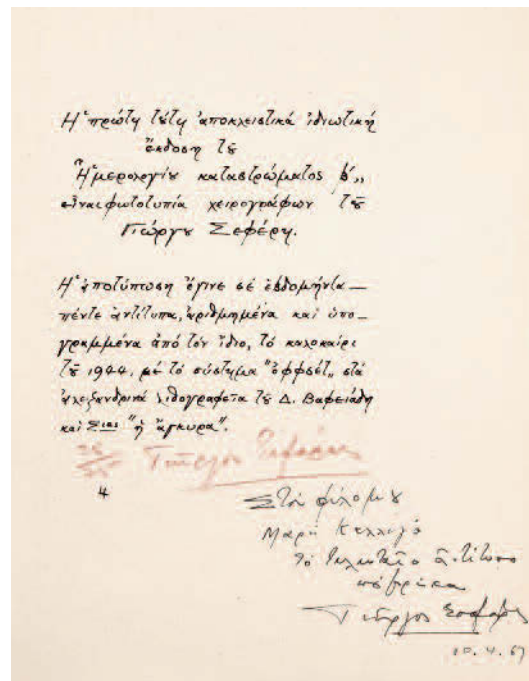 Ἡ πρώτη τούτη ἀποκλειστικά ἰδιωτική
ἔκδοση τοῦ
"Ἡμερολογίου καταστρώματος β',,
εἶναι φωτοτυπία χειρογράφων τοῦ
Γιώργου Σεφέρη.
Ἡ ἀποτύπωση ἔγινε σέ ἑβδομήντα—
πέντε ἀντίτυπα, ἀριθμημένα καί ὑπο—
γραμμένα ἀπό τόν ἴδιο, τό καλοκαίρι
τοῦ 1944, μέ τό σύστημα "ὄφφσέτ,, στά
ἀλεξανδρινά λιθογραφεῖα τοῦ Δ. Βαφειάδη
καί Σιας "ἡ ἄγκυρα".
Γιῶργος Σεφέρης
4
Στόν φίλο μου
Μαρῆ
τό τελευταῖο ἀντίτυπο
πού βρῆκα
Γιῶργος Σεφέρης
10.4.67